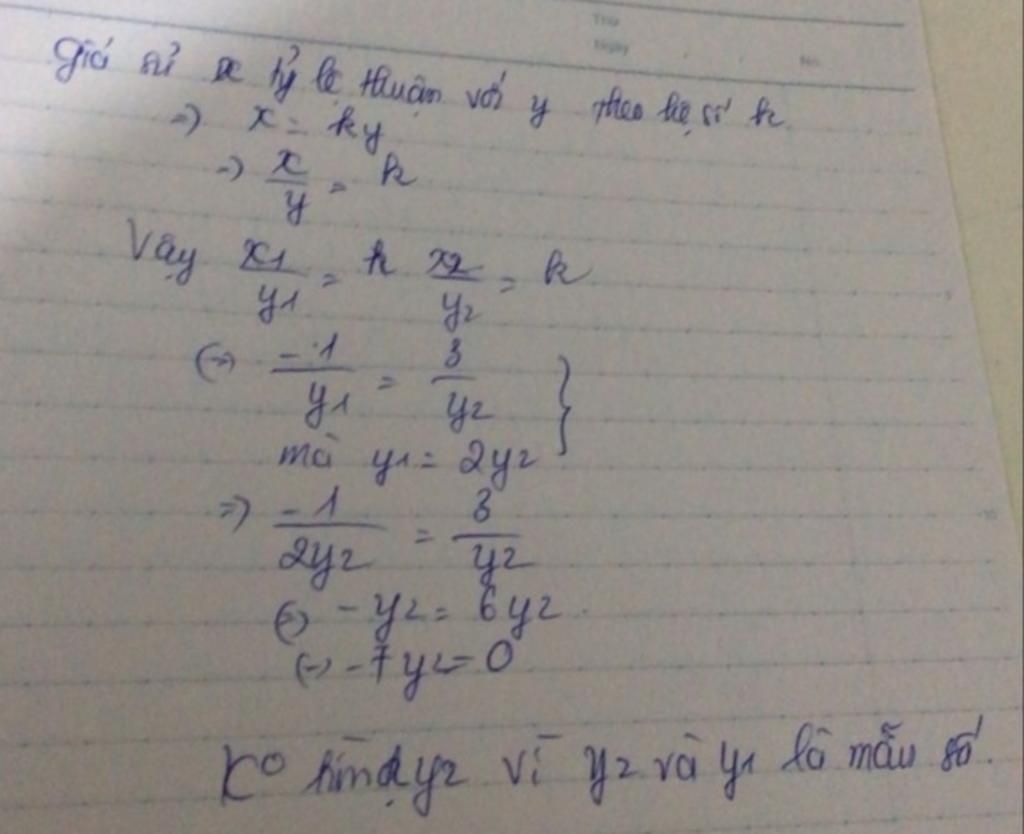 Thứ
Ngày
No.
Giả sử x tỷ lệ thuận với y theo hệ số k
=> x = ky
=> x/y = k
Vậy x1/y1 = k x2/y2 = k
<=> -1/y1 = 3/y2 }
mà y1 = 2y2
=> -1/2y2 = 3/y2
<=> -y2 = 6y2
<=> -7y2 = 0
K° tìm đc y2 vì y2 và y1 là mẫu số.